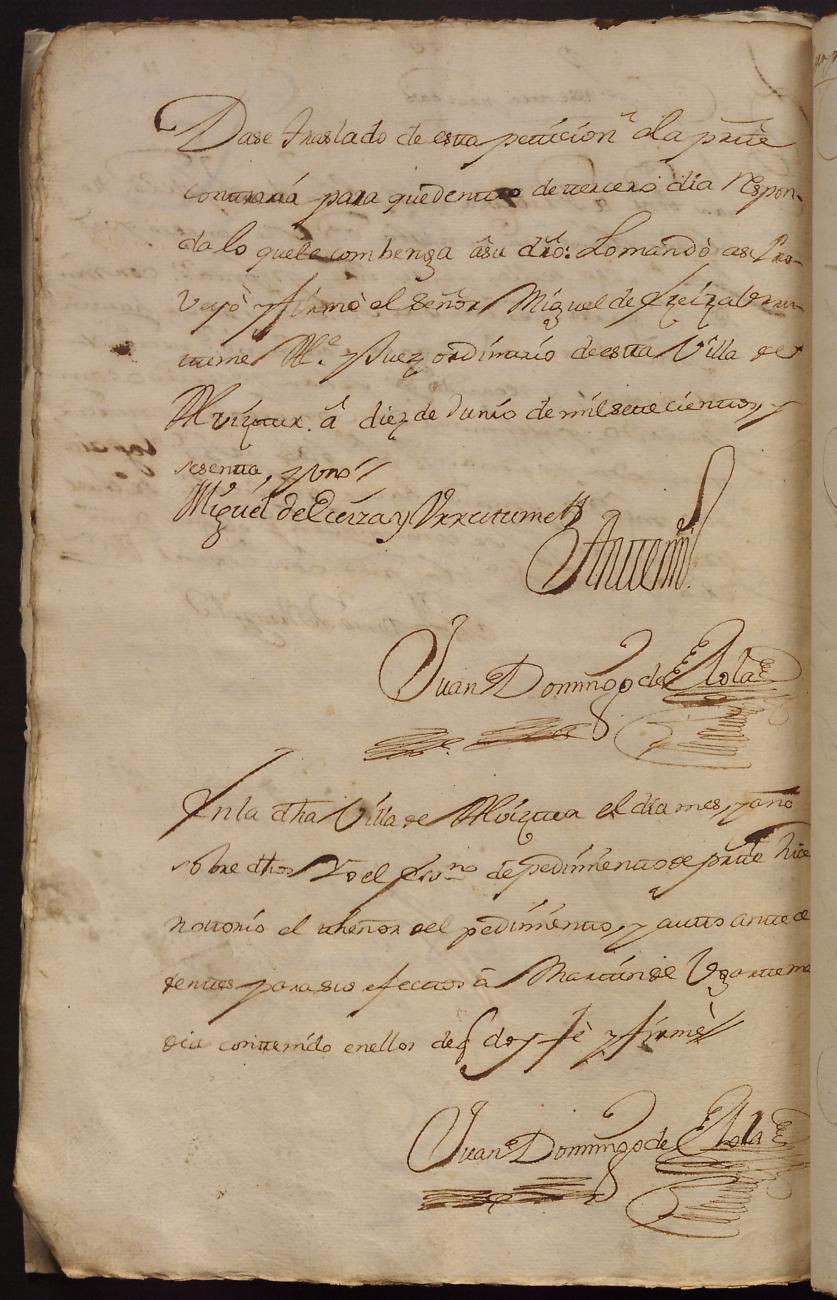 Dase traslado de esta peticion a la prte
contraria para que dentro de tercero dia respon-
da lo que le combenga â su dro: Lo mandò asi Pro-
veyò y firmò el señor Miguel de Eleizalde Urru-
tume Alc.e y Juez ordinario de esta Villa de
Alvíztur. â diez de Junio de mil sete cientos, y
sesenta, y uno//
Miguel de Eleiza y Urrutume
Ante mi
Juan Domingo de Elola
En la dha Villa de Alviztur el dia mes, y año
sobre dhos Yo el Essno de pedimiento de parte hice
notorio el thenor del pedimiento, y autto antece
dentes para sus efecttos â Martin de Ugartema
dia conttenido en ellos de q doy fè y firmè//
Juan Domingo de Elola